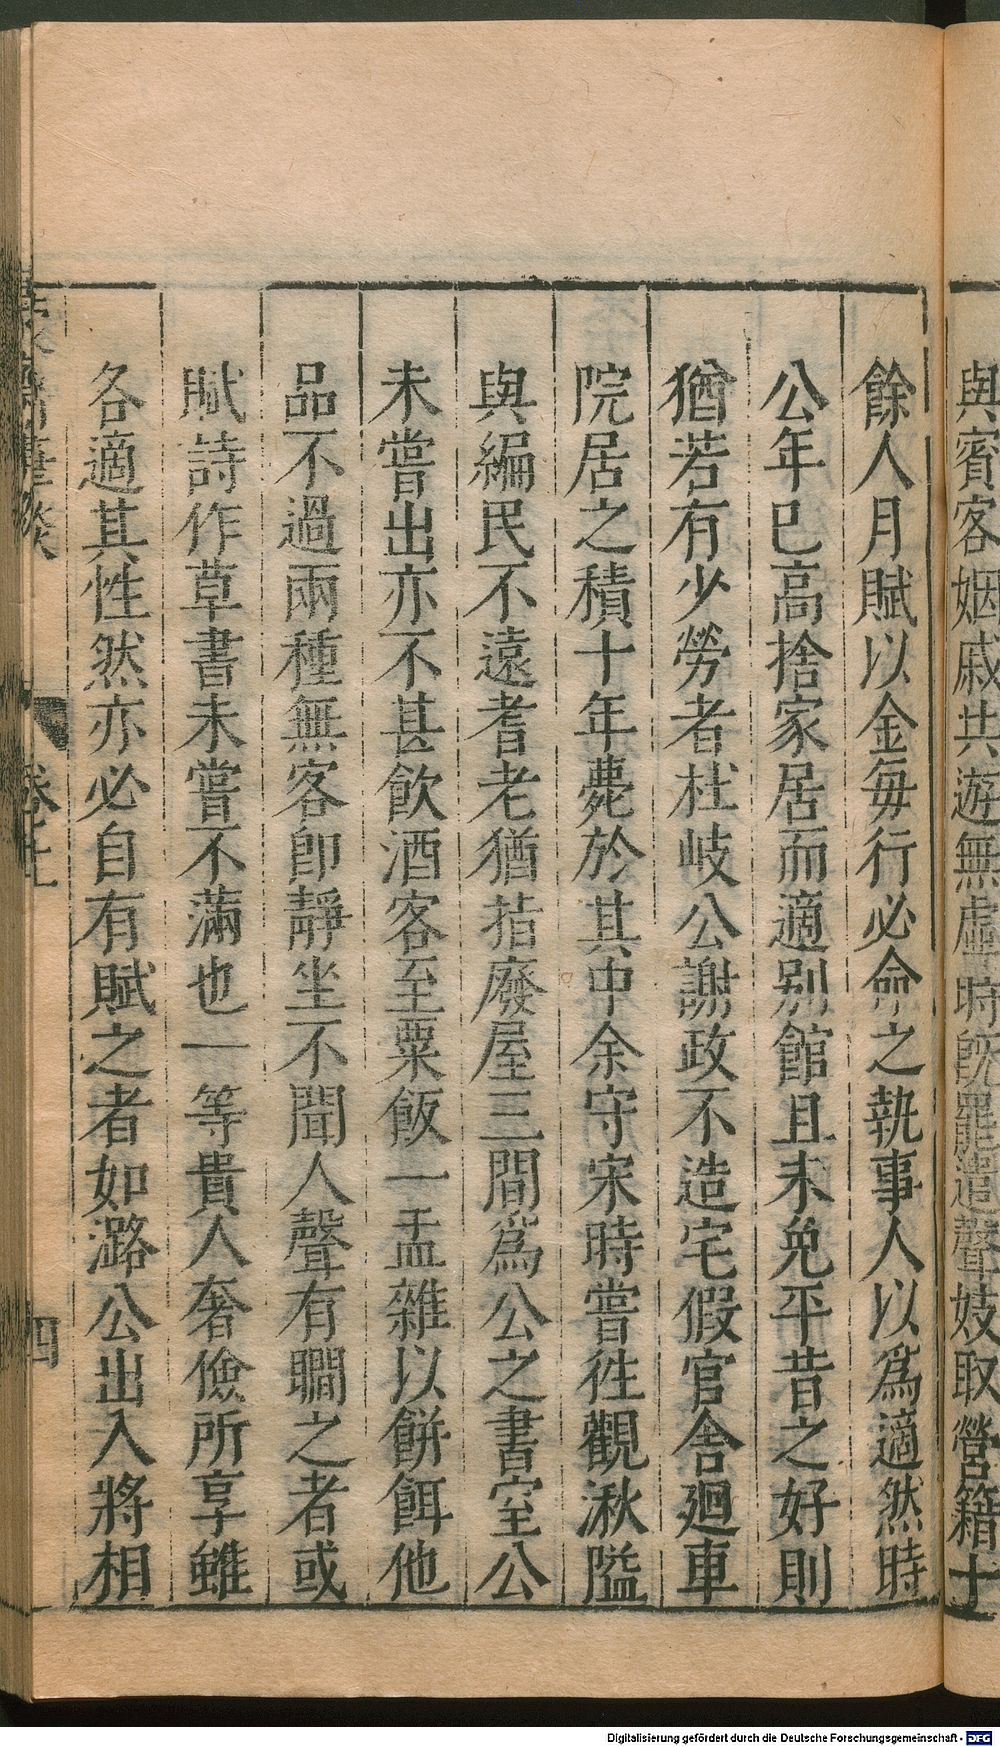 與賓客姻戚共遊無虛時旣罷遣聲妓取營籍十
餘人月賦以金每行必命之執事人以爲適然時
公年已高捨家居而適別館且未免平昔之好則
猶若有少勞者杜岐公謝政不造宅假官舍廻車
院居之積十年薨於其中余守宋時嘗徃觀湫隘
與編民不遠耆老猶指廢屋三間爲公之書室公
未嘗出亦不甚飲酒客至粟飯一盂雜以餅餌他
品不過兩種無客卽靜坐不聞人聲有瞯之者或
賦詩作草書未嘗不滿也一等貴人奢儉所享雖
各適其性然亦必自有賦之者如潞公出入將相
四
Digitalisierung gefördert durch die Deutsche Forschungsgemeinschaft - DFG